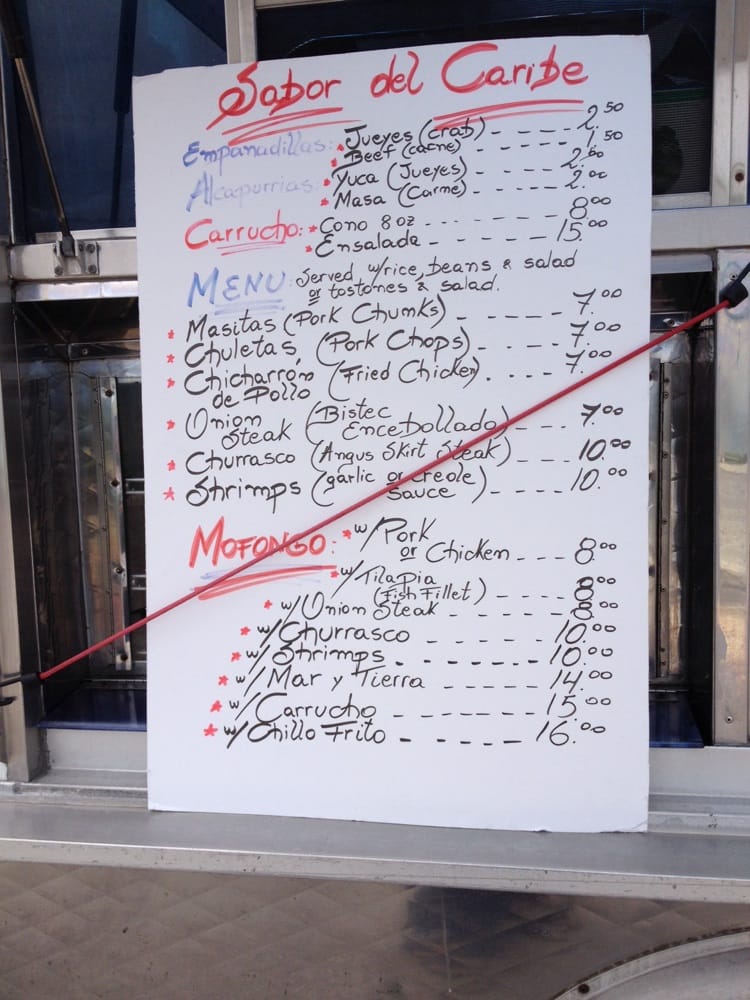 Sabor del Caribe
Empanadillas: * Jueyes (crab) - - - - 2.50
* Beef (carne) - - - - 1.50
Alcapurrias: * Yuca (Jueyes) - - - - 2.50
* Masa (Carne) - - - - 2.00
Carrucho: * Cono 8 oz - - - - - - - 8.00
* Ensalada - - - - - - 15.00
MENU: Served w/rice, beans & salad
or tostones & salad.
* Masitas (Pork Chumks) - - - - 7.00
* Chuletas (Pork Chops) - - - - 7.00
* Chicharrón (Fried Chicken) - - - - 7.00
de Pollo
* Onion (Bistec
Steak Encebollado) - - - - 7.00
* Churrasco (Angus Skirt Steak) - - - 10.00
* Shrimps (garlic or creole
sauce) - - - - 10.00
MOFONGO: * w/Pork
or Chicken - - - 8.00
* w/Tilapia
(Fish Fillet) - - - - 8.00
* w/Onion Steak - - - - - - 8.00
* w/Churrasco - - - - - - - 10.00
* w/Shrimps - - - - - - - - 10.00
* w/Mar y Tierra - - - - - - 14.00
* w/Carrucho - - - - - - - - 15.00
* w/Chillo Frito - - - - - - 16.00